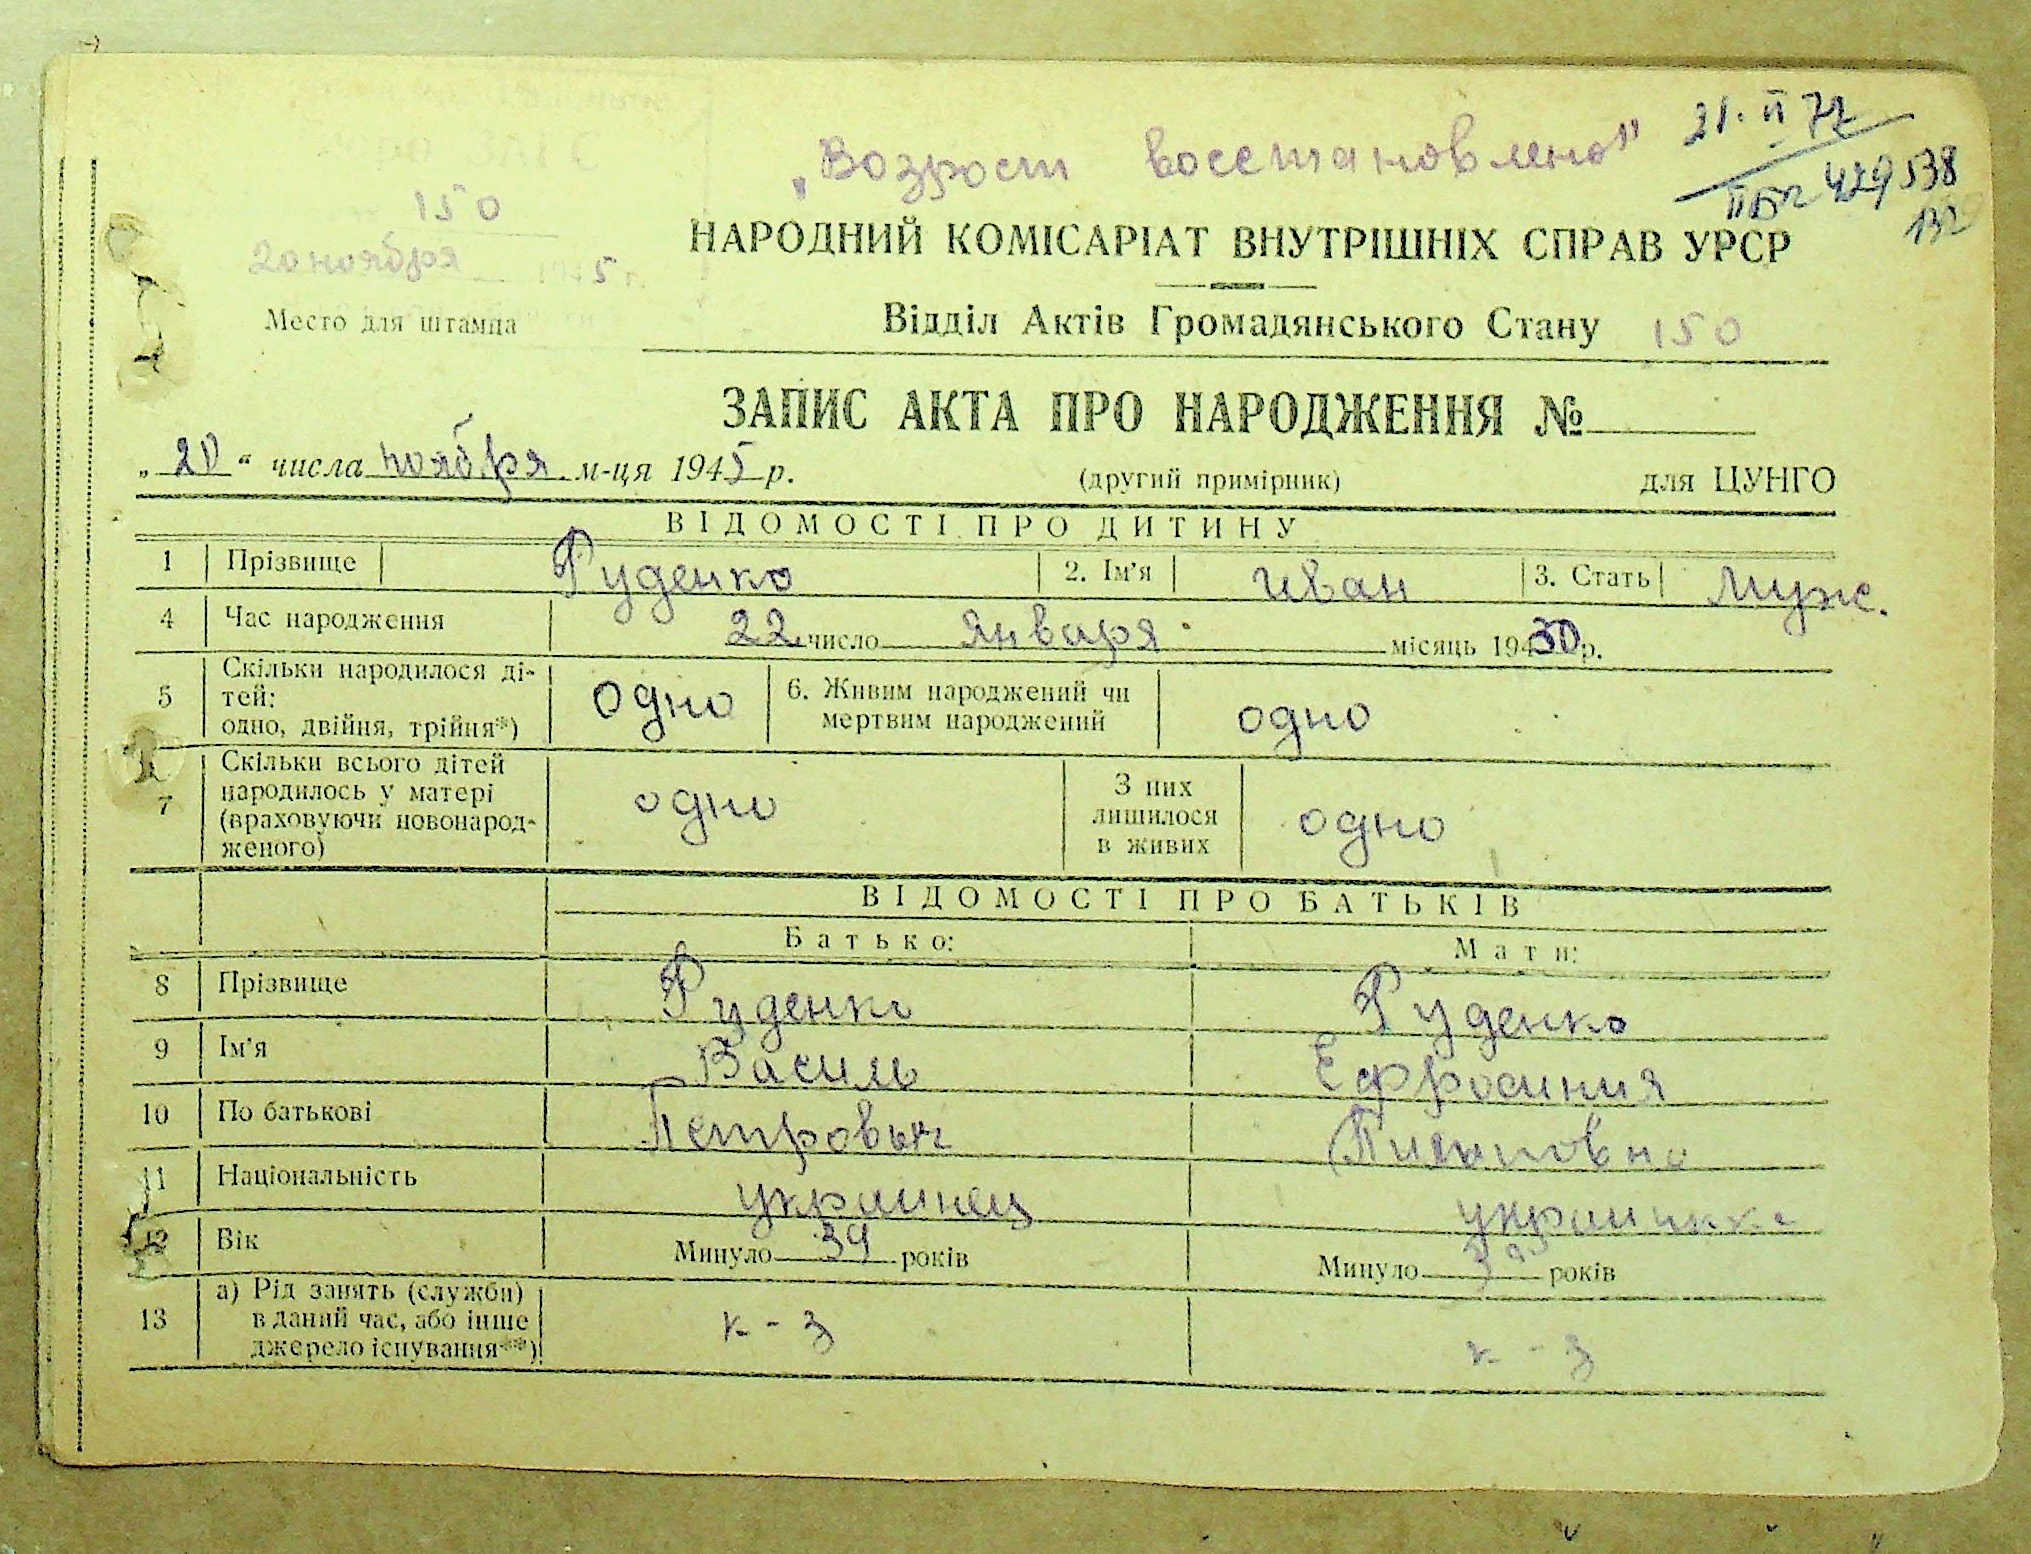 „Возрост восстановлено"
21·II 72
II БП 429538
132
150
20 ноября 1945 г.
Место для штампа
НАРОДНИЙ КОМІСАРІАТ ВНУТРІШНІХ СПРАВ УРСР
Відділ Актів Громадянського Стану 150
ЗАПИС АКТА ПРО НАРОДЖЕННЯ №
„20" числа ноября м-ця 1945 р. (другий примірник) для ЦУНГО
ВІДОМОСТІ ПРО ДИТИНУ
1 Прізвище Руденко 2. Ім'я Иван 3. Стать Муж.
4 Час народження 22 число Января місяць 1930 р.
5 Скільки народилося ді-
тей:
одно, двійня, трійня*) одно 6. Живим народжений чи
мертвим народжений одно
7 Скільки всього дітей
народилось у матері
(враховуючи новонарод-
женого) одно З них
лишилося
в живих одно
ВІДОМОСТІ ПРО БАТЬКІВ
Батько: Мати:
8 Прізвище Руденко Руденко
9 Ім'я Василь Ефросиния
10 По батькові Петрович
11 Національність украинец украинка
12 Вік Минуло 39 років Минуло років
13 а) Рід занять (служби)
в даний час, або інше
джерело існування**) к-з к-з